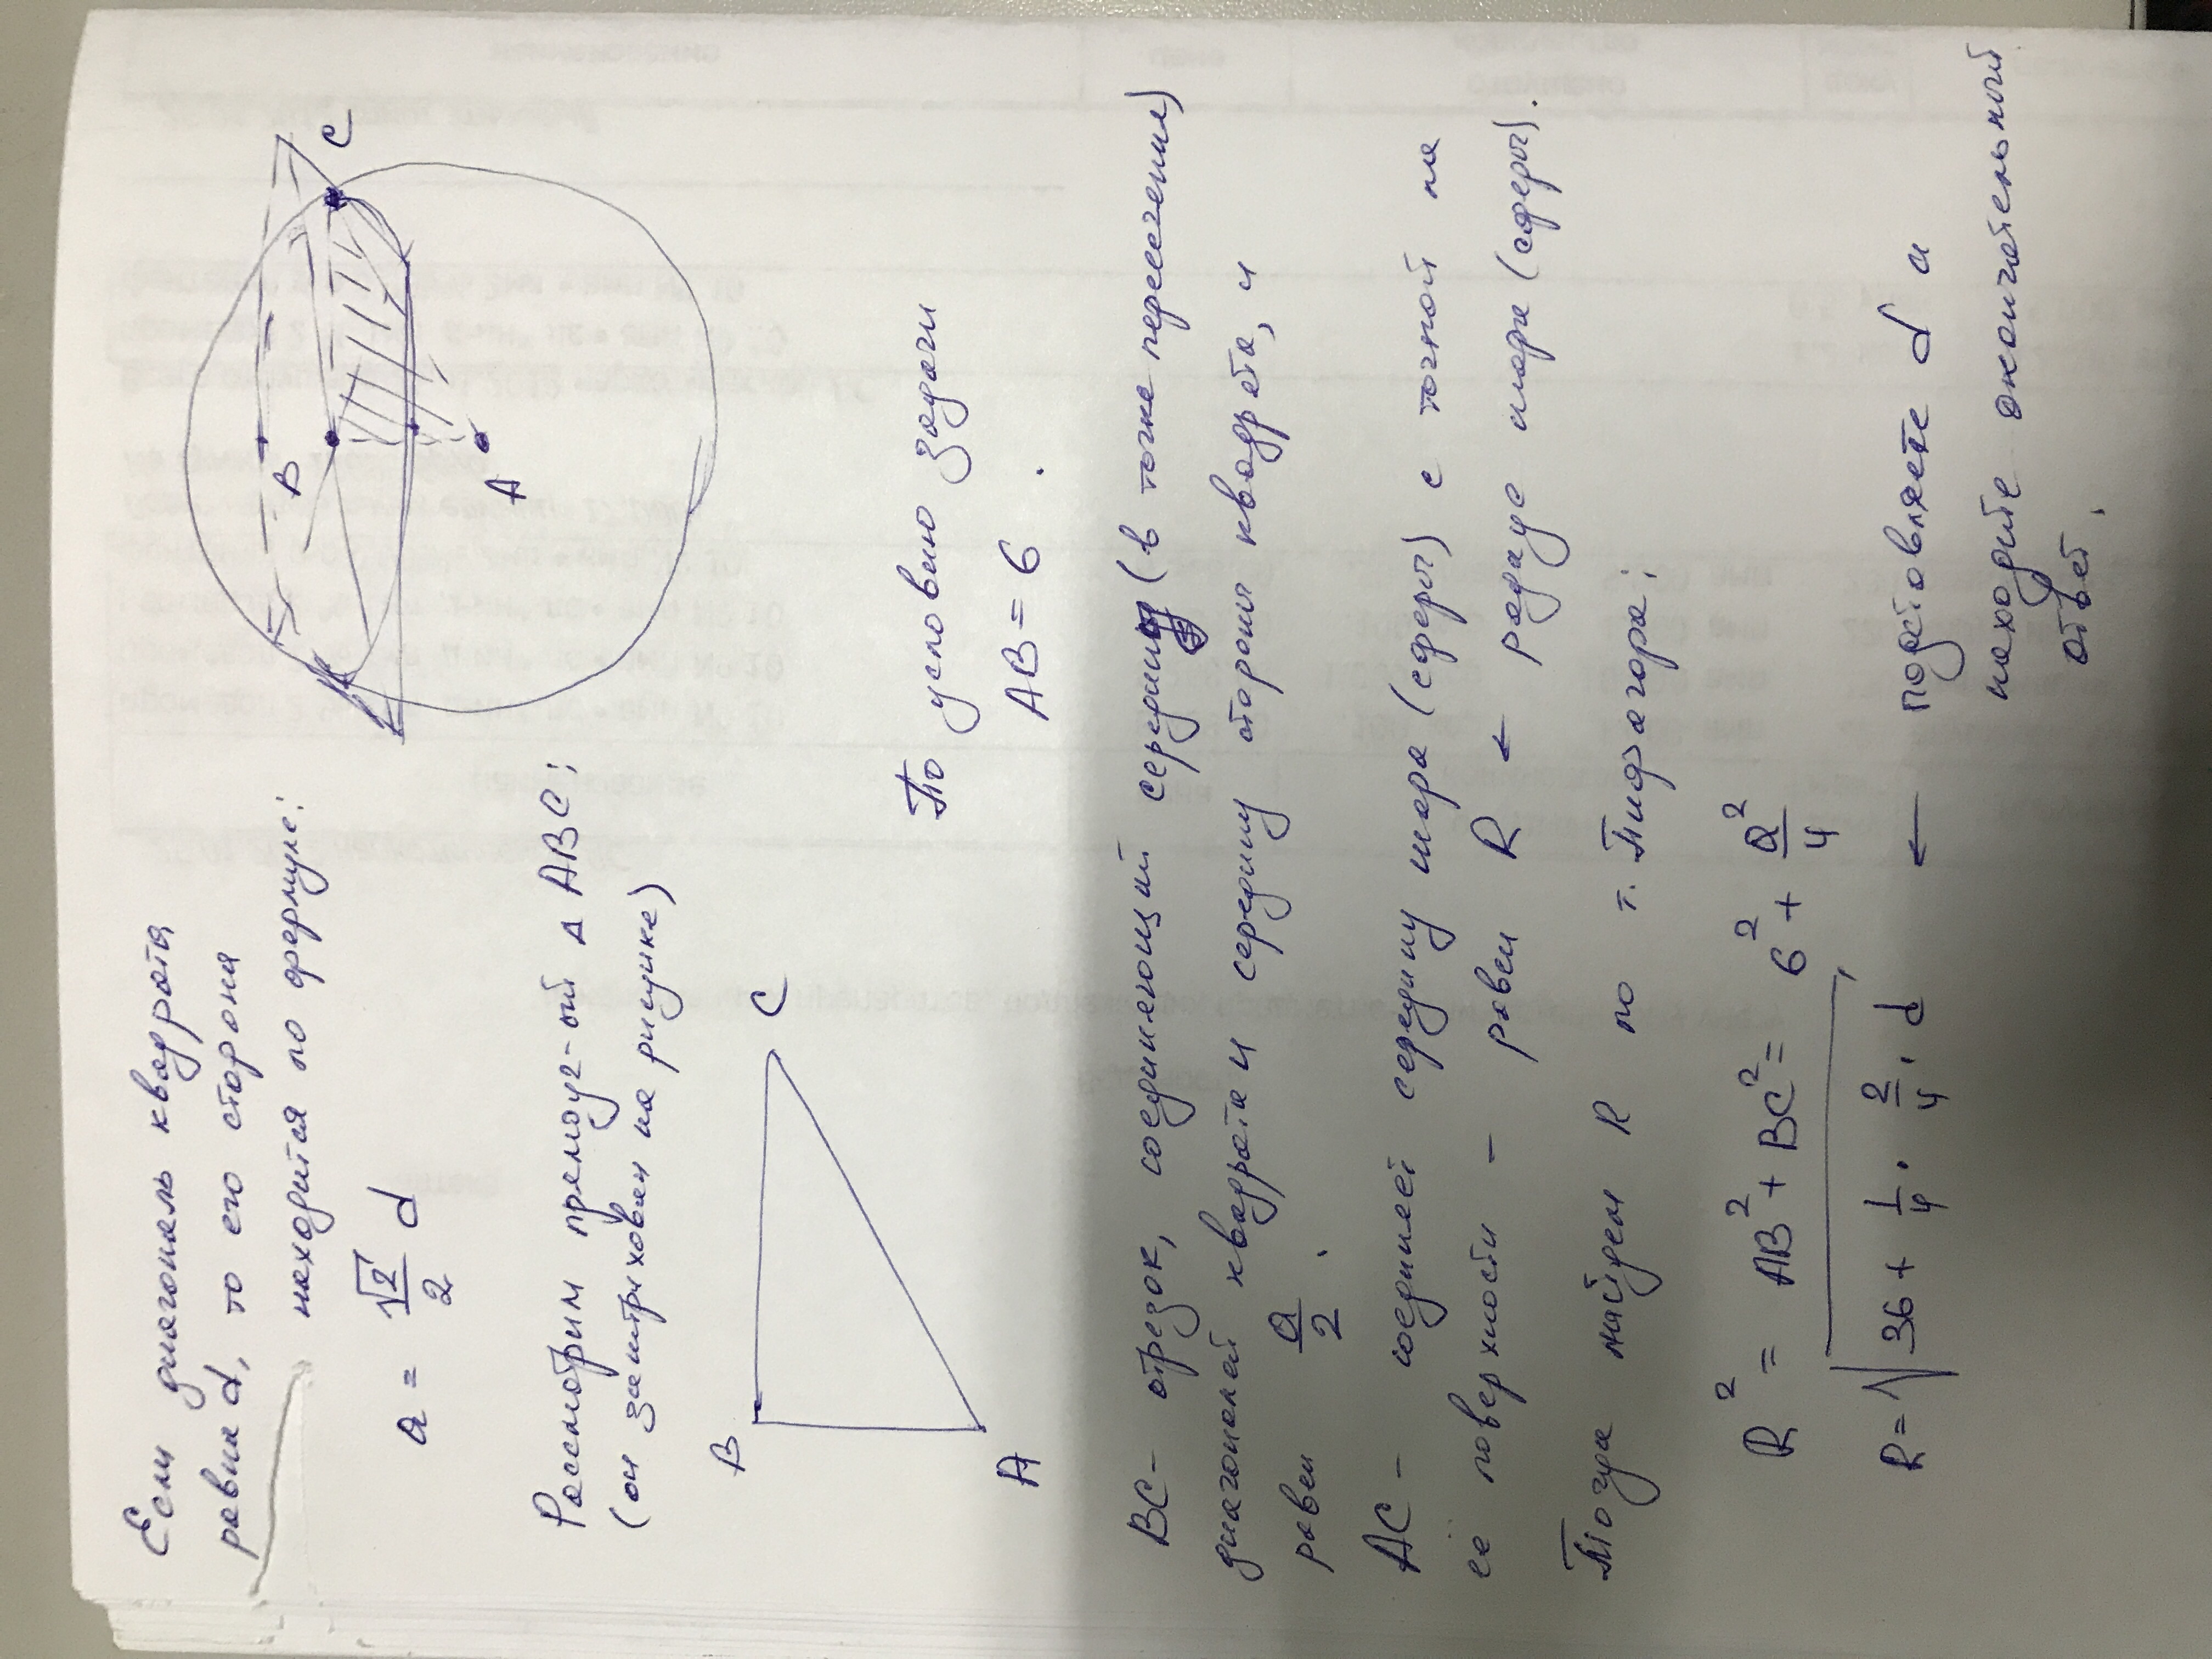 Если диагональ квадрата
равна d, то его сторона
находится по формуле:
a = √2/2 d
B
C
A
Рассмотрим прямоуг-ой Δ ABC:
(он заштрихован на рисунке)
B
C
A
По условию задачи
AB = 6.
BC - отрезок, соединяющий середину (в точке пересечения)
диагоналей квадрата и середину стороны квадрата, и
равен a/2.
AC - соединяет середину шара (сферы) с точкой на
её поверхности - равен R ← радиус шара (сферы).
Тогда найдем R по т. Пифагора:
R² = AB² + BC² = 6² + a²/4
R = √36 + 1/4 · 2/4 · d ← подставляете d и
находите окончательный
ответ.